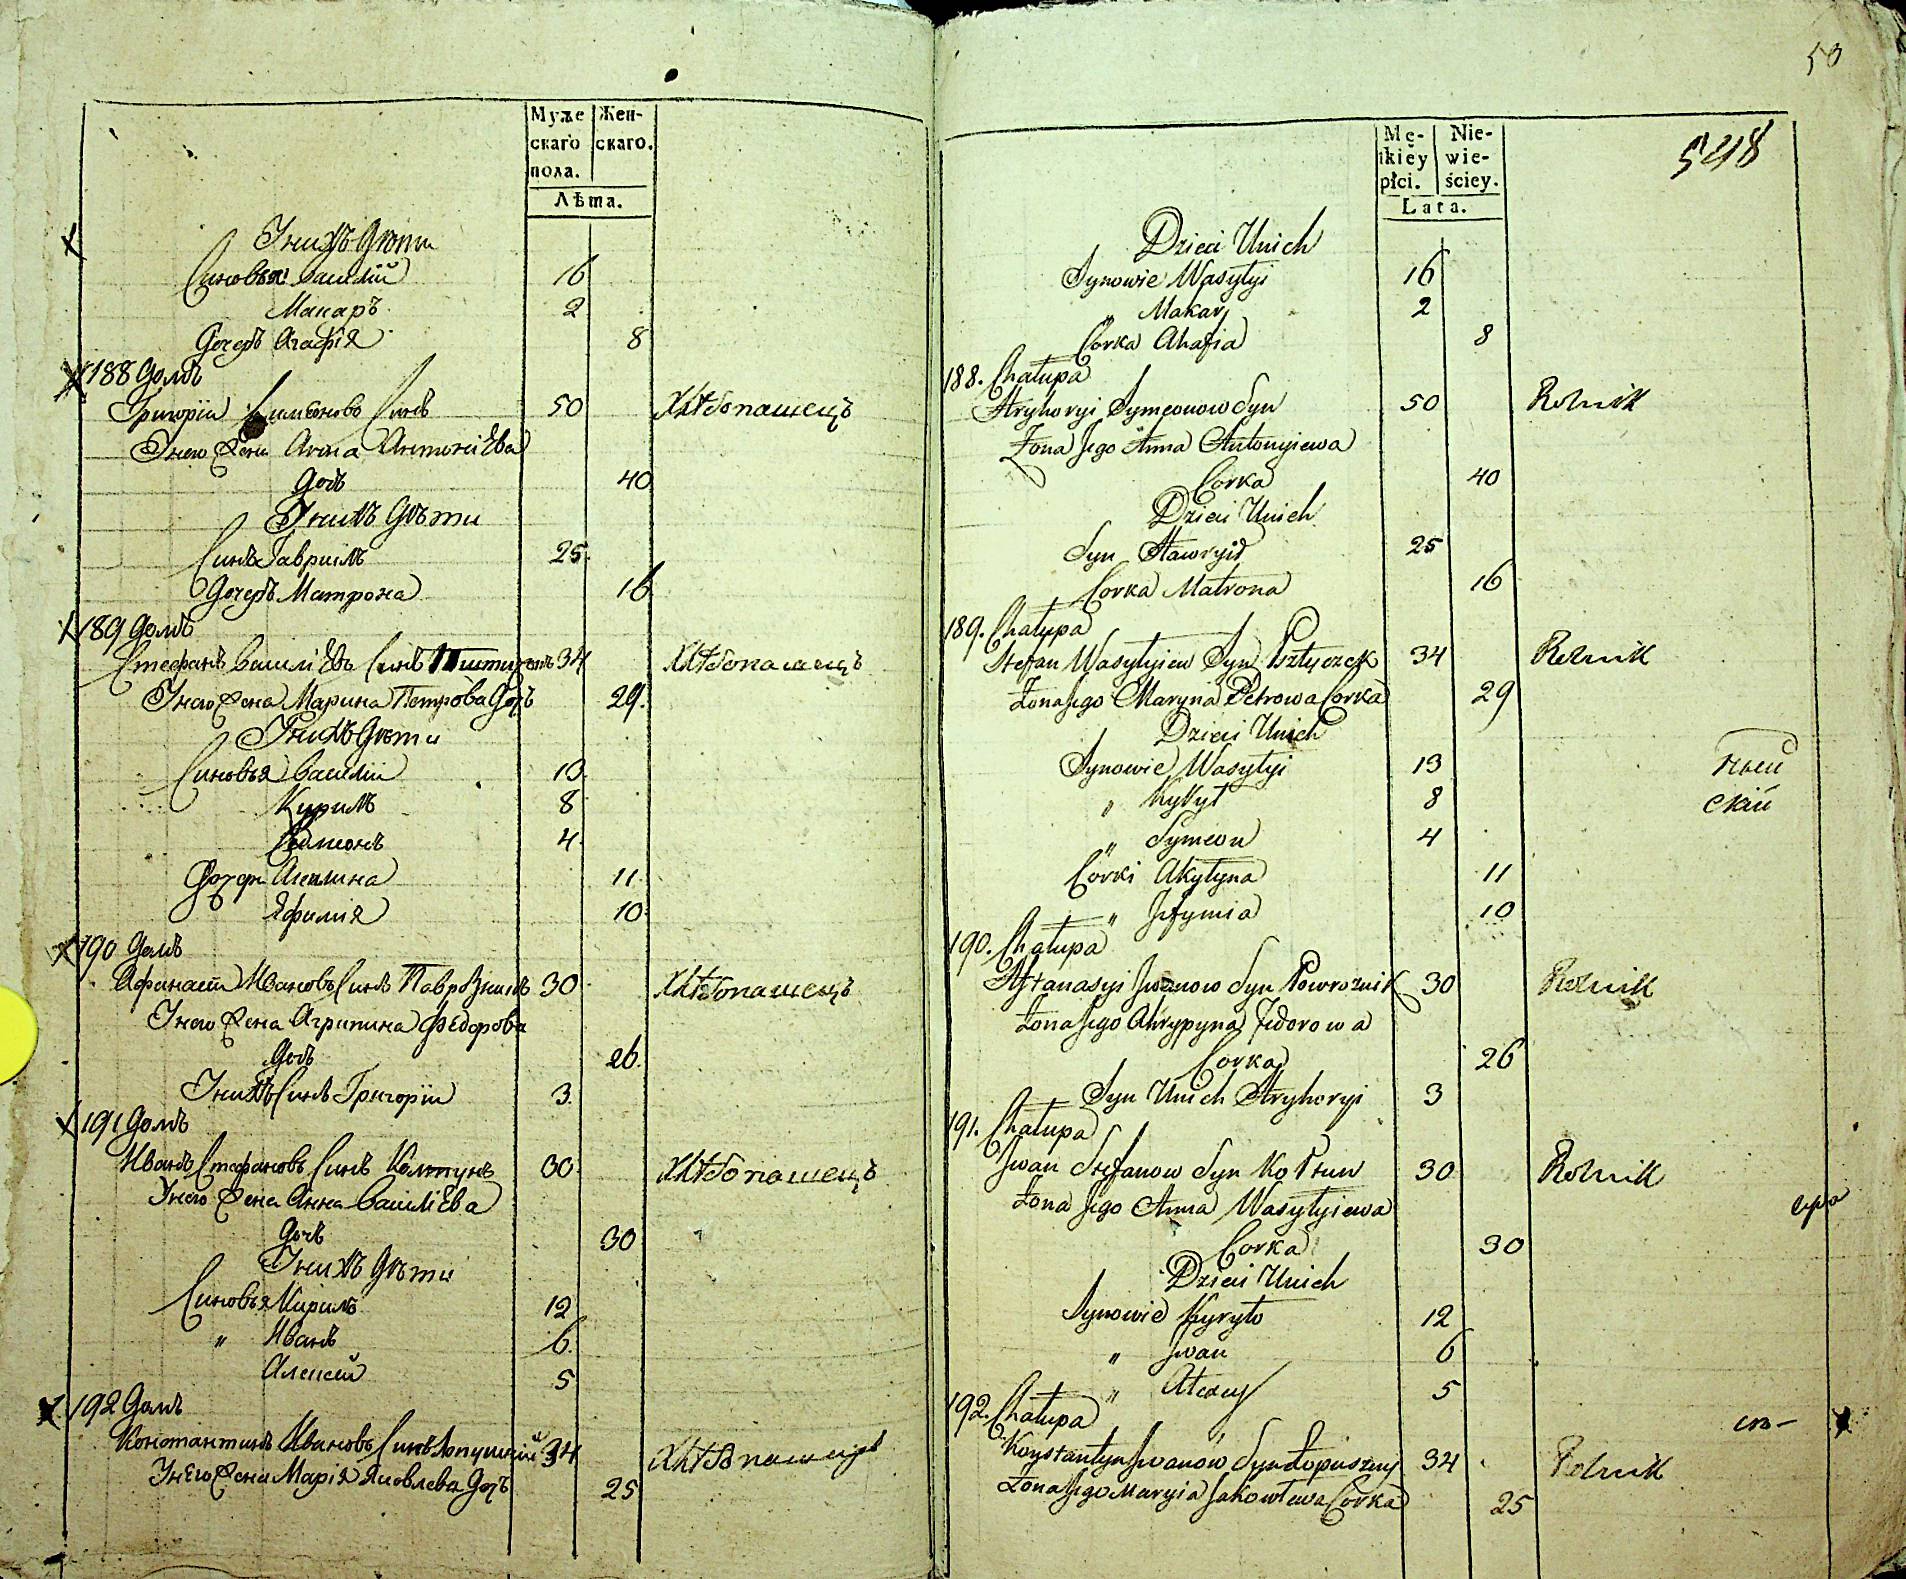 Муже
скаго
пола.
Жен-
скаго.
Лѣта.
У нихъ Дѣти
Синовья Василій 16
Макаръ 2
Дочерь Агафія 8
188 Домъ
Григорій Симеоновъ Синъ 50 Хлѣбопашецъ
У него Жена Анна Антоніева
Дочь 40
У нихъ Дѣти
Синъ Гавриилъ 25
Дочерь Матрона 16
189 Домъ
Стефанъ Василіевъ Синъ 34 Хлѣбопашецъ
У него Жена Марина Петрова Дочь 29
У нихъ Дѣти
Синовья Василій 13
Кирилъ 8
Симеонъ 4
Дочери Акилина 11
Яфимія 10
190 Домъ
Афанасій Ивановъ Синъ Паврозникъ 30 Хлѣбопашецъ
У него Жена Агрипина Федорова
Дочь 26
У нихъ Синъ Григорій 3
191 Домъ
Иванъ Стефановъ Синъ Колтунъ 30 Хлѣбопашецъ
У него Жена Анна Василіева
Дочь 30
У нихъ Дѣти
Синовья Кирилъ 12
" Иванъ 6
Алексей 5
192 Домъ
Константинъ Ивановъ Синъ Лопушный 34 Хлѣбопашецъ
У него Жена Марія Яковлева Дочь 25
50
548
Mę-
ikiéy
płci.
Nie-
wie-
ściey.
Lata.
Dzieci Unich
Synowie Wasylyi 16
" Makar 2
Corka Ahafia 8
188. Chałupa
Hryhoryi Symeonow Syn 50 Rolnik
Żona Jego Anna Antonyiewa
Corka 40
Dzieci Unich
Syn Hawryił 25
Corka Matrona 16
189. Chałupa
Stefan Wasylyiew Syn 34 Rolnik
Żona Jego Maryna Petrowa Corka 29
Dzieci Unich
Synowie Wasylyi 13
" Kyrył 8
" Symeon 4
Córki Akylyna 11
" Jefymia 10
190. Chałupa
Aftanasyi Jwanow Syn Powroznik 30 Rolnik
Żona Jego Ahrypyna Fedorowa
Corka 26
Syn Unich Hryhoryi 3
191. Chałupa
Jwan Stefanow Syn Kołtun 30 Rolnik
Żona Jego Anna Wasylyiewa
Corka 30
Dzieci Unich
Synowie Kyryło 12
" Jwan 6
" Ałexey 5
192. Chałupa
Konstantyn Jwanow Syn Łopuszny 34 Rolnik
Żona Jego Maryia Jakowlewa Corka 25